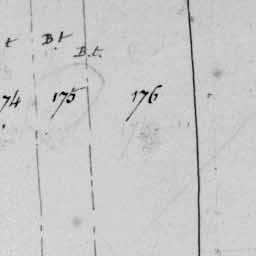 t B.t
B.t.
74 175 176